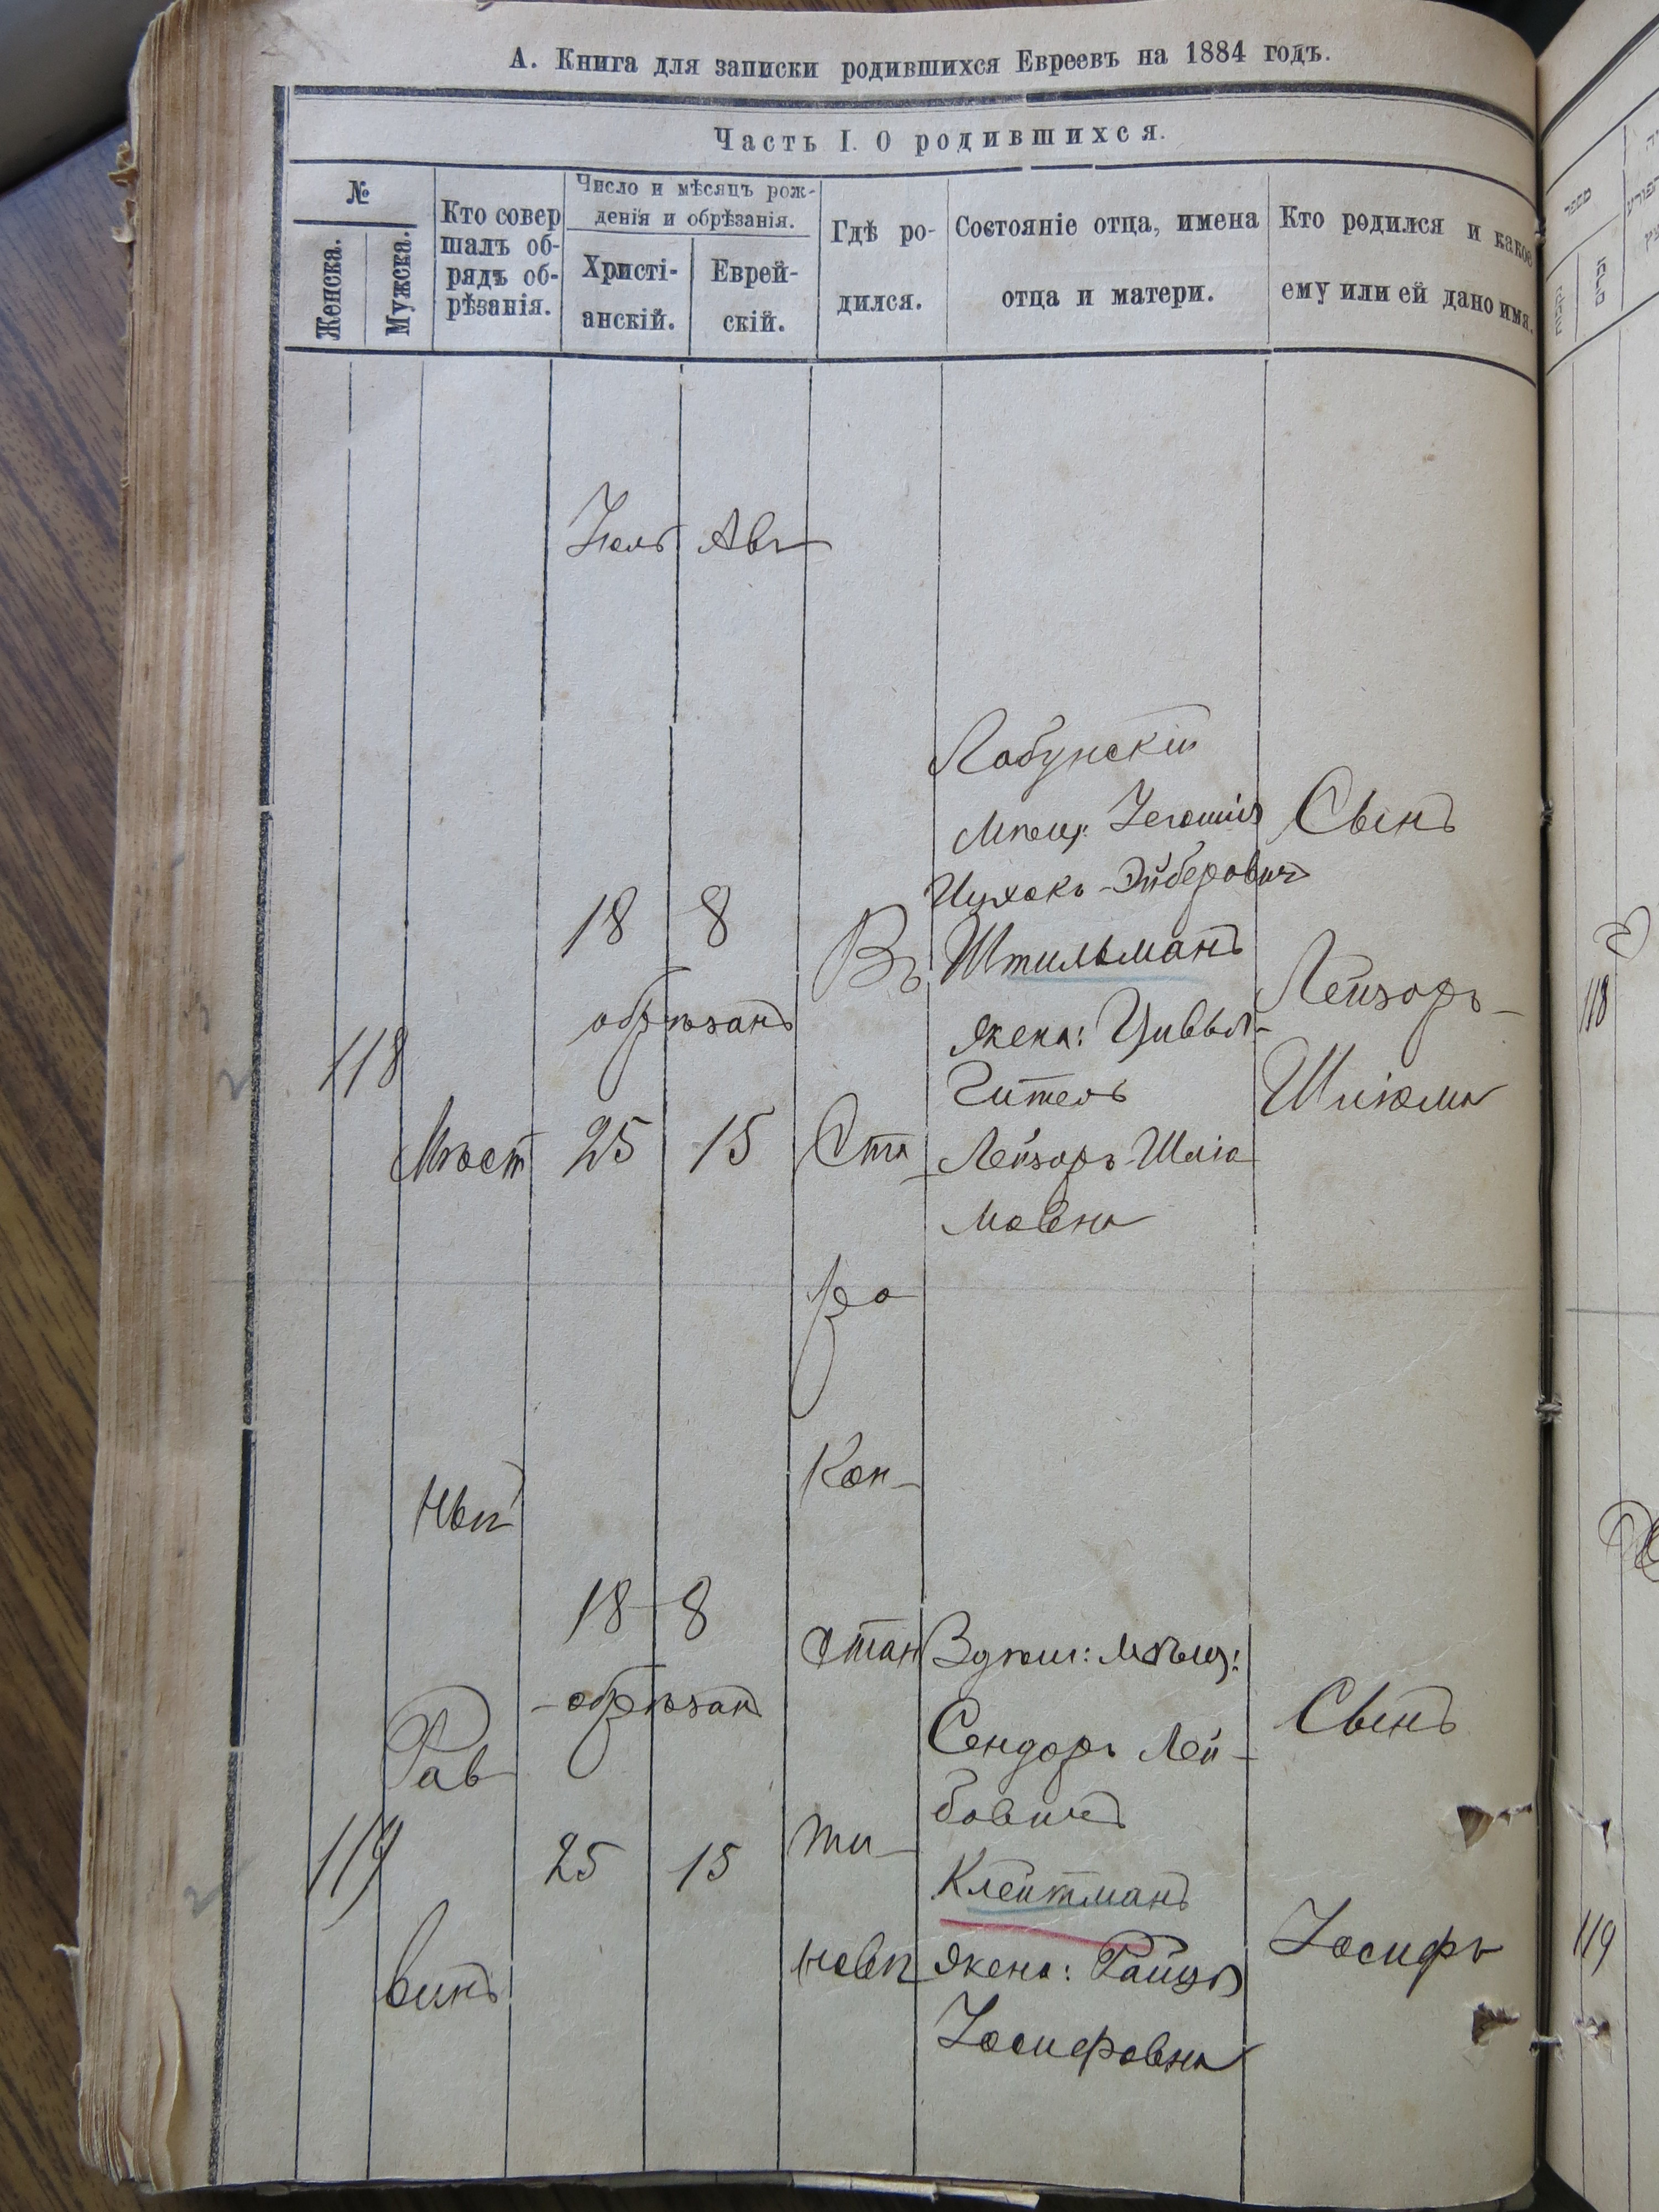 А. Книга для записки родившихся Евреевъ на 1884 годъ.
Часть I. О родившихся.
№
Женска.
Мужска.
Кто совер
шалъ об-
рядъ об-
рѣзанія.
Число и мѣсяцъ рож-
денія и обрѣзанія.
Христі-
анскій.
Еврей-
скій.
Гдѣ ро-
дился.
Состояніе отца, имена
отца и матери.
Кто родился и какое
ему или ей дано имя.
Іюль Авъ
118
Мѣст
ный
18 8
обрѣзанъ
25 15
Въ
Ста
ро
Кон-
Лабунскій
Мѣщ:
Ицхокъ
Штильманъ
жена: Цивья-
Гитель
Лейзоръ-Шлiо
мовна
Сынъ
Лейзоръ-
Шліома
119
Рав
винъ
18 8
обрѣзан
25 15
стан
ти-
новѣ
мѣщ:
Сендоръ Лей-
бовичъ
Клейтманъ
жена: Райця
Іосифовна
Сынъ
Іосифъ
118
119